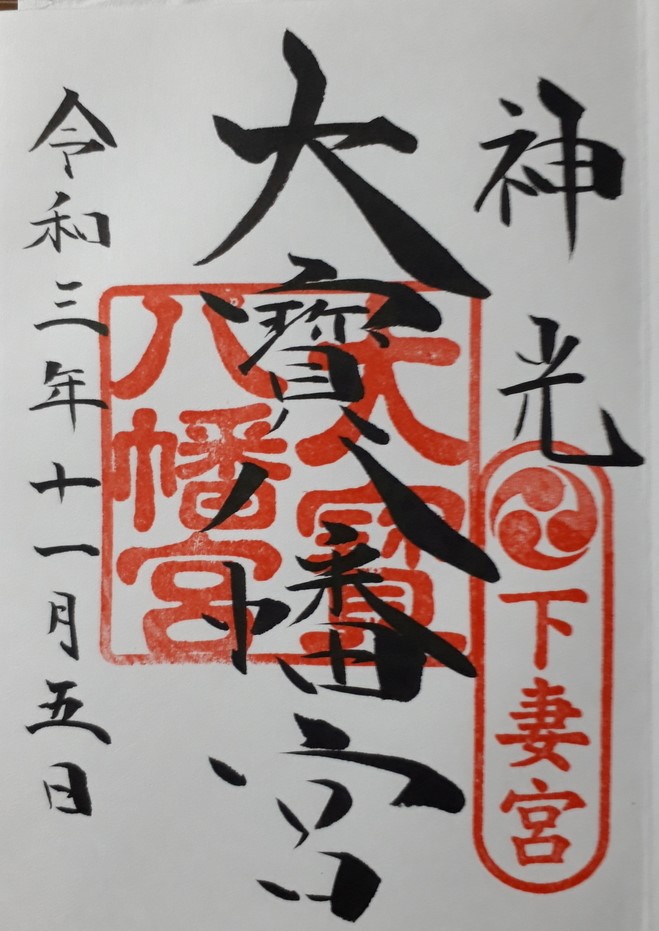 神光
下妻宮
大寳八幡宮
大寳
八幡宮
令和三年十一月五日